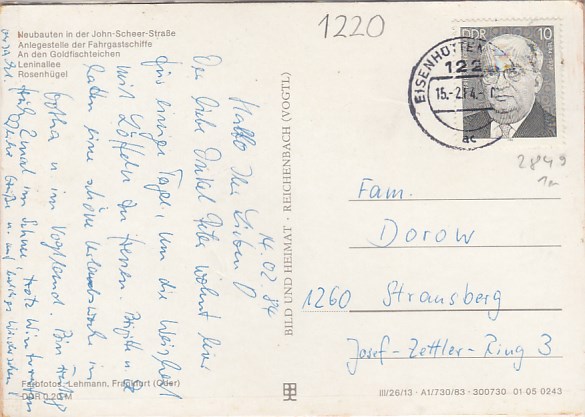 Neubauten in der John-Scheer-Straße
Anlegestelle der Fahrgastschiffe
An den Goldfischteichen
Leninallee
Rosenhügel
1220
DDR
10
EISENHÜTTEN
122
15.-2.84.-
ac
2849
14.02.84
Hallo Ihr Lieben!
Der liebe Onkel Peter wohnt hier
für einige Tage, um die Weisheit
mit Löffeln zu fressen.
hatten eine schöne Urlaubswoche in
Gotha u. im Vogtland.
BILD UND HEIMAT · REICHENBACH (VOGTL)
Fam.
Dorow
1260 Strausberg
Josef-Zettler-Ring 3
Farbfotos: Lehmann, Frankfurt (Oder)
DDR 0,20 M
III/26/13 · A1/730/83 · 300730 01 05 0243